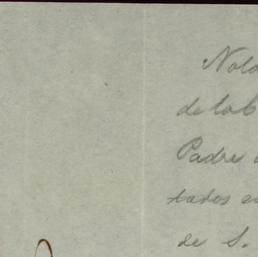 Nota
de lab
Padre
tados en
de S.